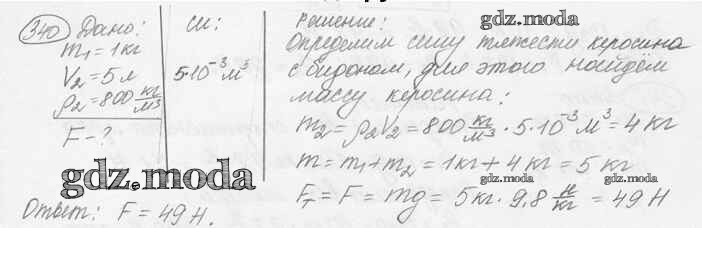 340 Дано:
m₁ = 1 кг
V₂ = 5 л
ρ₂ = 800 кг/м³
F - ?
си:
5·10⁻³ м³
Решение:
gdz.moda
Определим силу тяжести керосина
с бидоном, для этого найдём
массу керосина:
m₂ = ρ₂V₂ = 800 кг/м³ · 5·10⁻³ м³ = 4 кг
m = m₁ + m₂ = 1 кг + 4 кг = 5 кг
gdz.moda
gdz.moda
gdz.moda
Fт = F = mg = 5 кг · 9,8 Н/кг = 49 Н
Ответ: F = 49 Н.